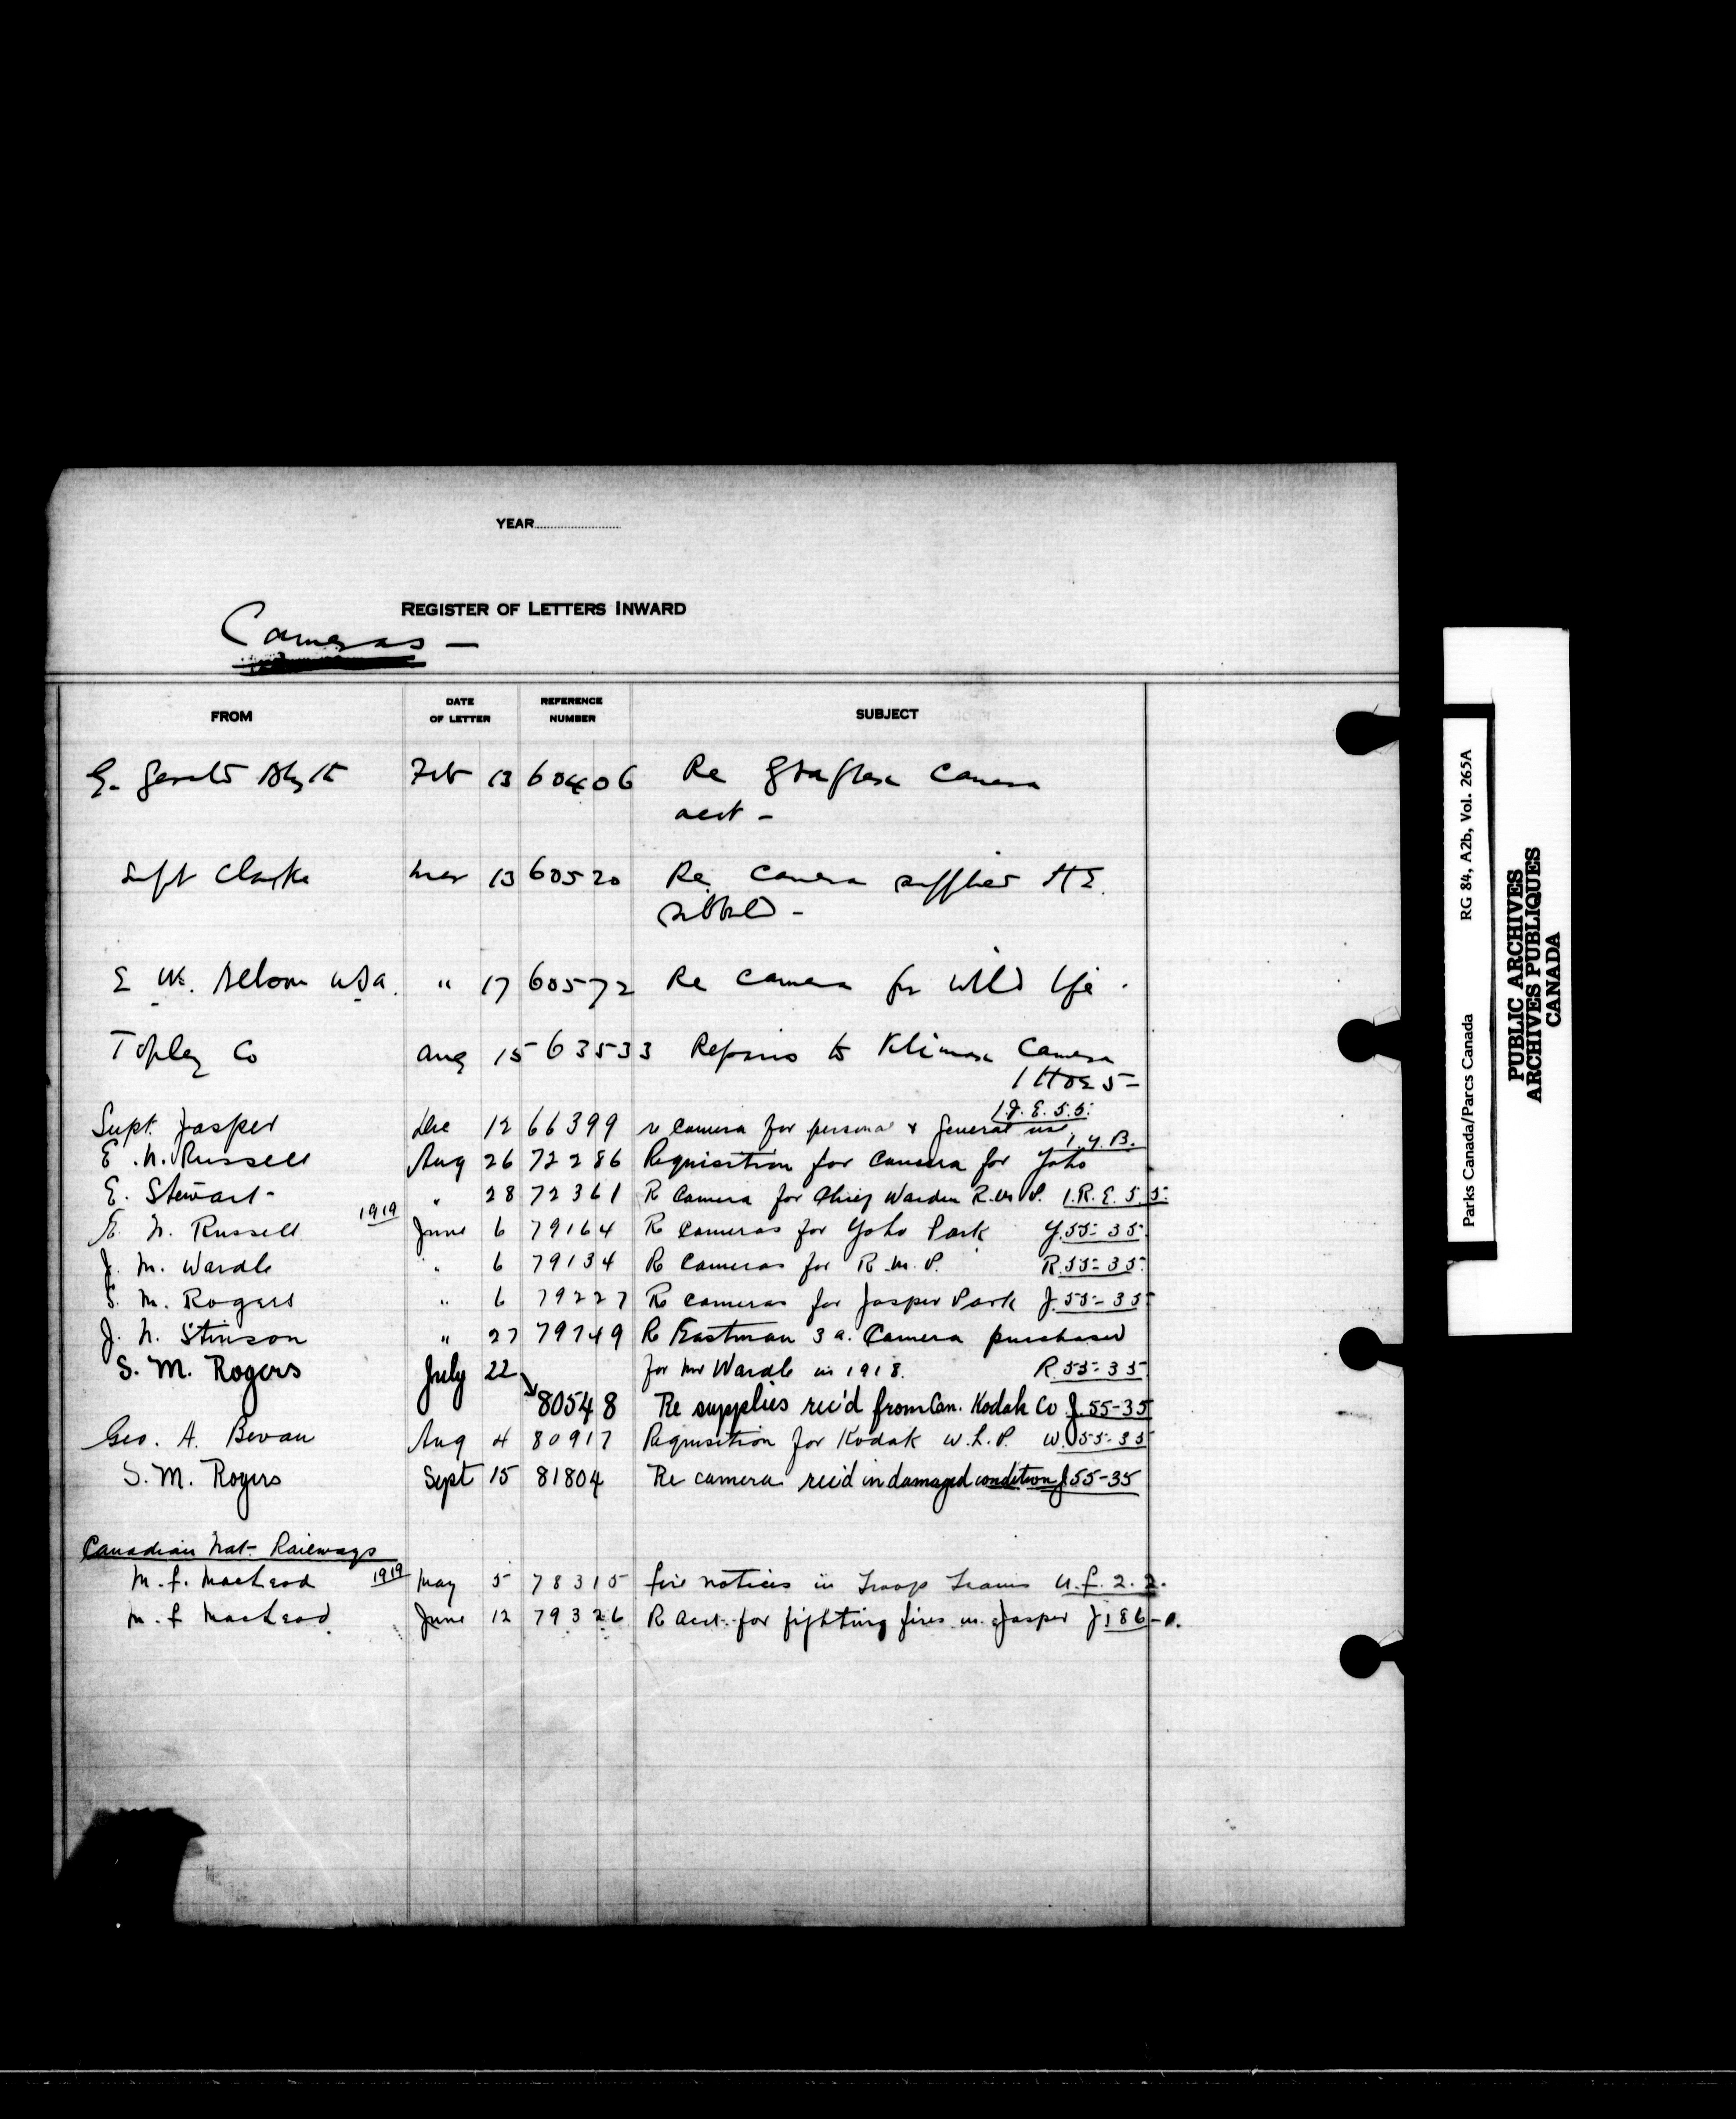 YEAR
REGISTER OF LETTERS INWARD
Cameras -
FROM DATE OF LETTER REFERENCE NUMBER SUBJECT
E. Gerald Feb 13 60406 Re Graflex Camera
acct -
Supt Clarke Mar 13 60520 Re Camera supplied HE.
Sibbald -
E W. Nelson USA. " 17 60572 Re camera for Wild life.
Topley Co Aug 15 63533 Repairs to Klimax Camera
1 HOE 5-
1.J.E.5.5.
Supt. Jasper Dec 12 66399 r camera for personal & general use
1.Y.B.
E. N. Russell Aug 26 72286 Requisition for Camera for Yoho
E. Stewart " 28 72361 R Camera for Chief Warden R.M.P. 1.R.E.5.5.
E. N. Russell 1919 June 6 79164 R Cameras for Yoho Park Y.55-35.
J. M. Wardle " 6 79134 R Cameras for R.M.P. R.55-35.
S. M. Rogers " 6 79227 R cameras for Jasper Park J.55-35.
J. N. Stinson " 27 79749 R Eastman 3a. Camera purchased
for Mr Wardle in 1918. R.55-35
S. M. Rogers July 22
80548 Re supplies rec'd from Can. Kodak Co J.55-35
Geo. A. Bevan Aug 4 80917 Requisition for Kodak W.L.P. W.55-35
S. M. Rogers Sept 15 81804 Re camera rec'd in damaged condition J.55-35
Canadian Nat. Railways
M. F. MacLeod 1919 May 5 78315 fire notices in Troop Trains U.F.2.2.
M. F MacLeod June 12 79326 R Acct. for fighting fires in Jasper J186-A.
Parks Canada/Parcs Canada RG 84, A2b, Vol. 265A
PUBLIC ARCHIVES
ARCHIVES PUBLIQUES
CANADA